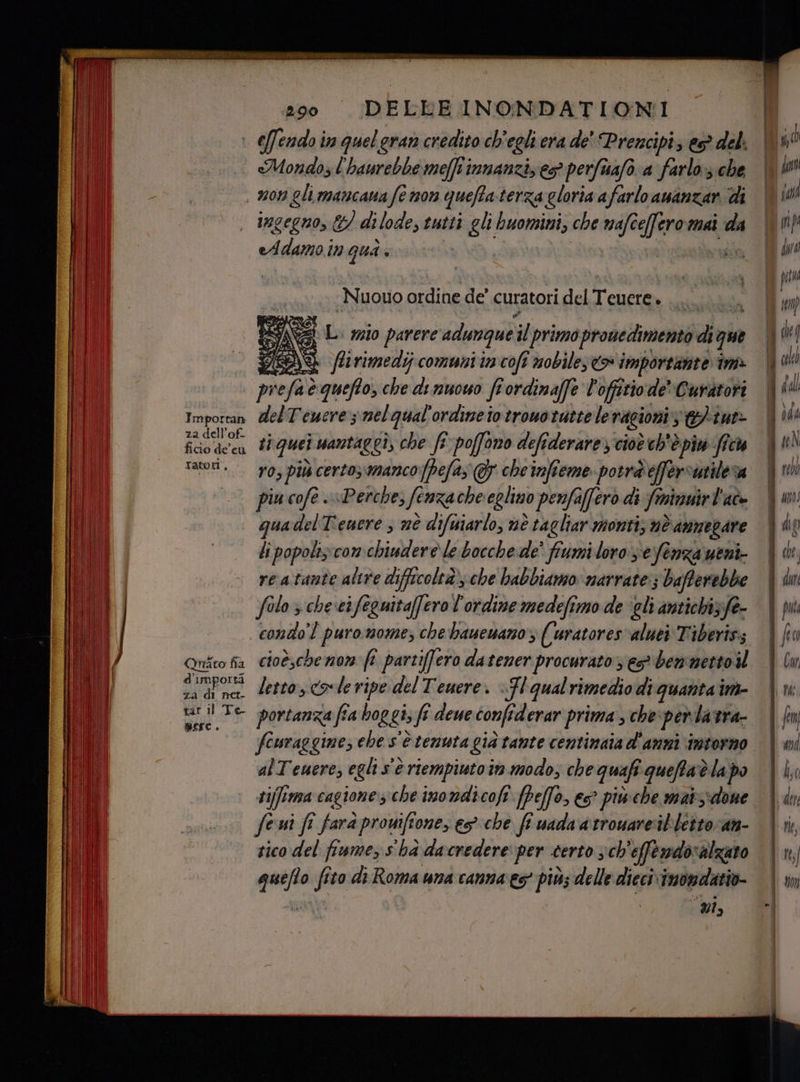 290 DELLE INONDATIONI
essendo in quel gran credito ch'egli era de' Prencipi, & del
Mondo, l'haurebbe messi innanzi, & persuaso a farlo; che
non gli mancaua se non questa terza gloria a farlo auanzar di
ingegno, & di lode, tutti gli huomini, che nascessero mai da
Adamo in quà.
Nuouo ordine de' curatori del Teuere.
L mio parere adunque il primo prouedimento di que
sti rimedij comuni in cosi nobile, & importante im-
presa è questo, che di nuouo si ordinasse l'offitio de' Curatori
del Teuere; nel qual'ordine io trouo tutte le ragioni, & tut-
ti quei uantaggi, che si possono desiderare, cioè ch'è piu sicu
ro, più certo, manco spesa, & che insieme potrà esser utile a
piu cose. Perche, senza che eglino pensassero di sminuir l'ac-
qua del Teuere, nè disuiarlo, nè tagliar monti, nè annegare
li popoli, con chiudere le bocche de' fiumi loro, e senza ueni-
re a tante altre difficoltà, che habbiamo narrate; basterebbe
solo, che ei seguitassero l'ordine medesimo de gli antichi, se-
condo'l puro nome, che haueuano, Curatores aluei Tiberis;
cioè, che non si partissero da tener procurato, & ben netto il
letto, & le ripe del Teuere. Il qual rimedio di quanta im-
portanza sia hoggi, si deue considerar prima, che per la tra-
scuraggine, che s'è tenuta già tante centinaia d'anni intorno
al Teuere, egli s'è riempiuto in modo, che quasi questa è la po
tissima cagione, che inondi cosi spesso, & più che mai, doue
se ui si farà prouisione, & che si uada a trouare il letto an-
tico del fiume, s'hà da credere per certo, ch'essendo alzato
questo sito di Roma una canna & più; delle dieci inondatio-
ni,
Importan
za dell'of-
ficio de'cu
ratori.
Quāto sia
d'importā
za di net-
tar il Te-
uere.